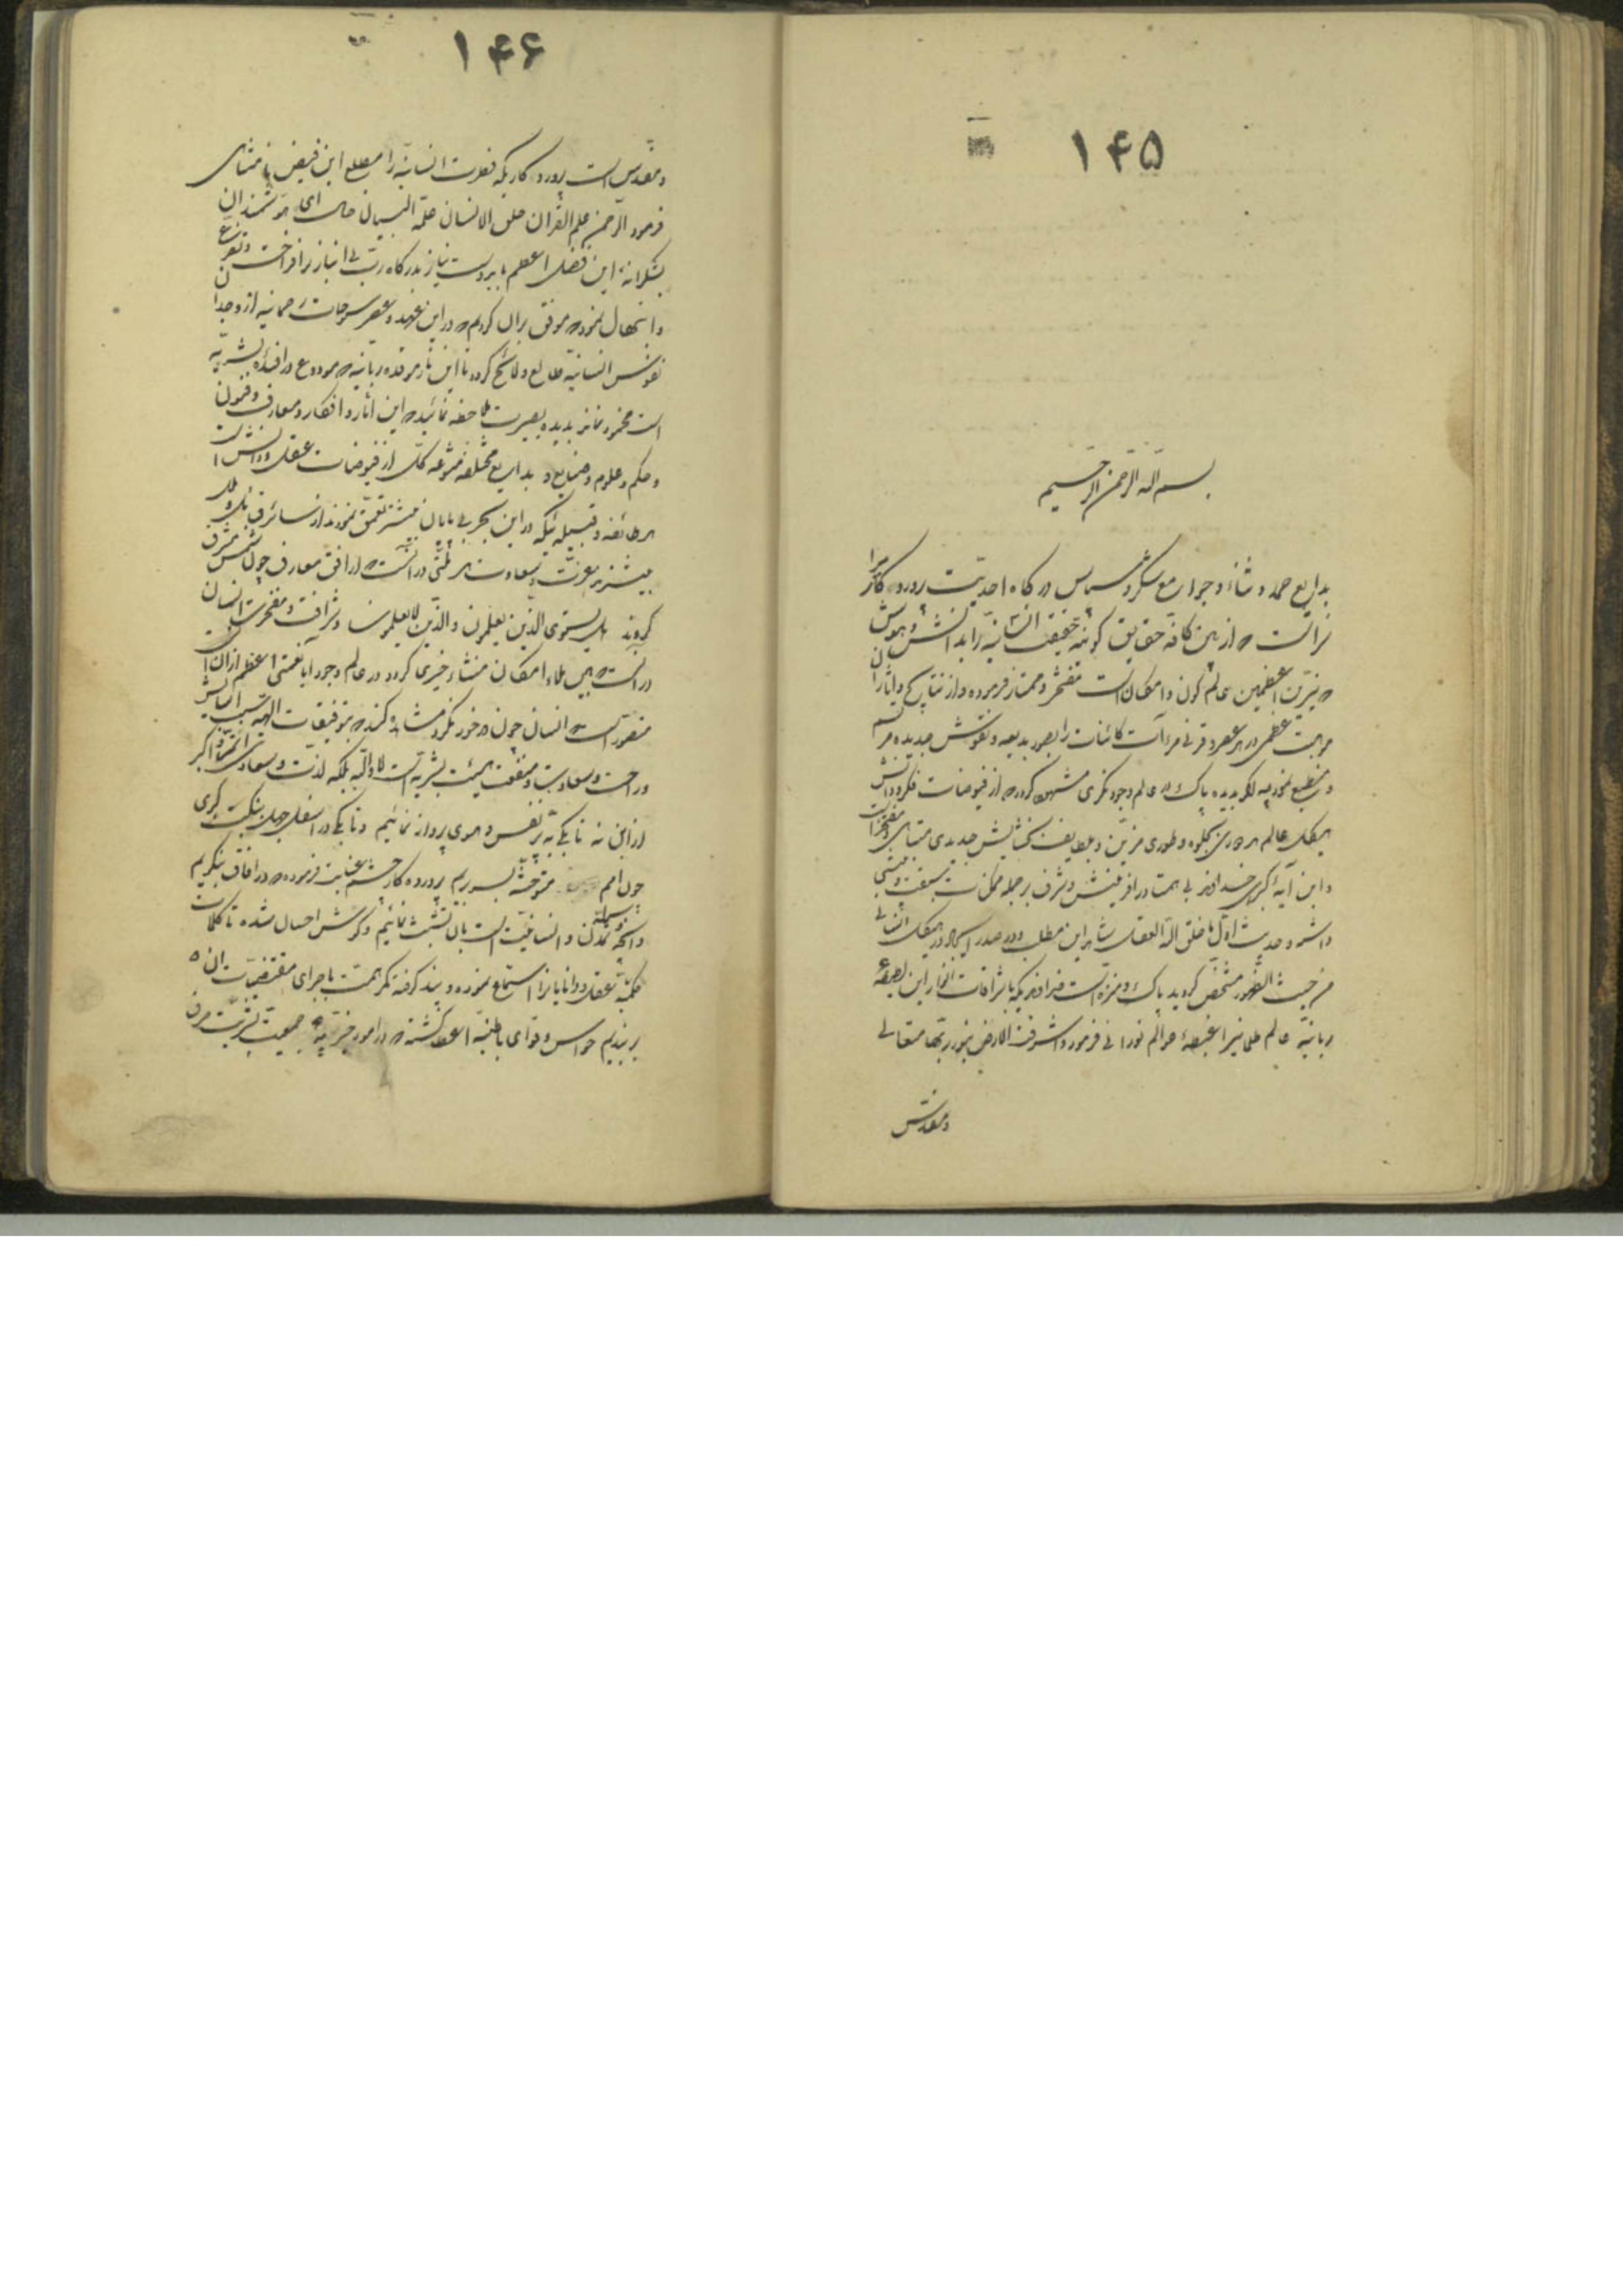 ۱۴۵
بسم الله الرحمن الرحیم
بدایع حمد و ثناء و جوامع شکر و سپاس درگاه احدیت پروردگاری را
سزاست که از بین کافه حقایق کونیه حقیقت انسانیه را بدانش و هوش
که نیرین اعظمین عالم کون و امکان است مفتخر و ممتاز فرموده و از نتایج و آثار آن
موهبت عظمی در هر عصر و قرنی مرآت کائنات را بصور بدیعه و نقوش جدیده مرتسم
و منطبع نموده اگر بدیده پاک در عالم وجود نگری مشهود گردد که از فیوضات فکر و دانش
هیکل عالم در هر دوری بجلوه و طوری مزین و بلطایف بخشایش جدیدی متباهی و مفتخر است
و این آیه کبرای خداوند بی همتا در آفرینش و شرف بر جمله ممکنات سبقت و پیشی
داشته و حدیث اول ما خلق الله العقل شاهد این مطلب و در صدر ایجاد در هیکل انسانی
من حیث الظهور مشخص گردید پاک و منزه است خداوندیکه باشراقات انوار این لطیفه
ربانیه عالم ظلمانی را غبطه عوالم نورانی فرمود و اشرقت الارض بنور ربها متعالی
و مقدس
۱۴۶
و مقدس است پروردگاریکه فطرت انسانیه را مطلع این فیض نامتناهی
فرمود الرحمن علم القرآن خلق الانسان علمه البیان حال ای هوشمندان
بشکرانه این فضل اعظم باید دست نیاز بدرگاه رب بی انباز برافراخت و تضرع
و ابتهال نمود که موفق بر آن گردیم که در این عهد و عصر سنوحات رحمانیه از وجدان
نفوس انسانیه طالع و لائح گردد تا این نار موقده ربانیه که مودوع در افئده بشریه
است مخمود نماند بدیده بصیرت ملاحظه نمائید که این آثار و افکار و معارف و فنون
و حکم و علوم و صنایع و بدایع مختلفه متنوعه کل از فیوضات عقل و دانش است
هر طائفه و قبیله ئیکه در این بحر بی پایان بیشتر تعمق نمودند از سائر قبائل و ملل
پیشترند عزت و سعادت هر ملتی در آنست که از افق معارف چون شمس مشرق
گردند هل یستوی الذین یعلمون و الذین لا یعلمون و شرافت و مفخرت انسان
در آنست که بین ملاء امکان منشاء خیری گردد در عالم وجود آیا نعمتی اعظم از آن
متصور است که انسان چون در خود نگرد مشاهده کند که بتوفیقات الهیه سبب آسایش
و راحت و سعادت و منفعت هیئت بشریه است لا والله بلکه لذت و سعادتی اتم و اکبر
از این نه تا بکی بپر نفس و هوی پرواز نمائیم و تا بکی در اسفل جهل بنکبت کبری
چون امم متوحشه بسر بریم پروردگار چشم عنایت فرموده که در آفاق بنگریم
و آنچه وسیله تمدن و انسانیت است بآن تشبث نمائیم و گوش احسان شده تا کلمات
حکمیه عقلا و دانایان را استماع نموده و پند گرفته کمر همت باجرای مقتضیات آن
بر بندیم حواس و قوای باطنیه اعطا گشته که در امور خیریه جمعیت بشریت صرف